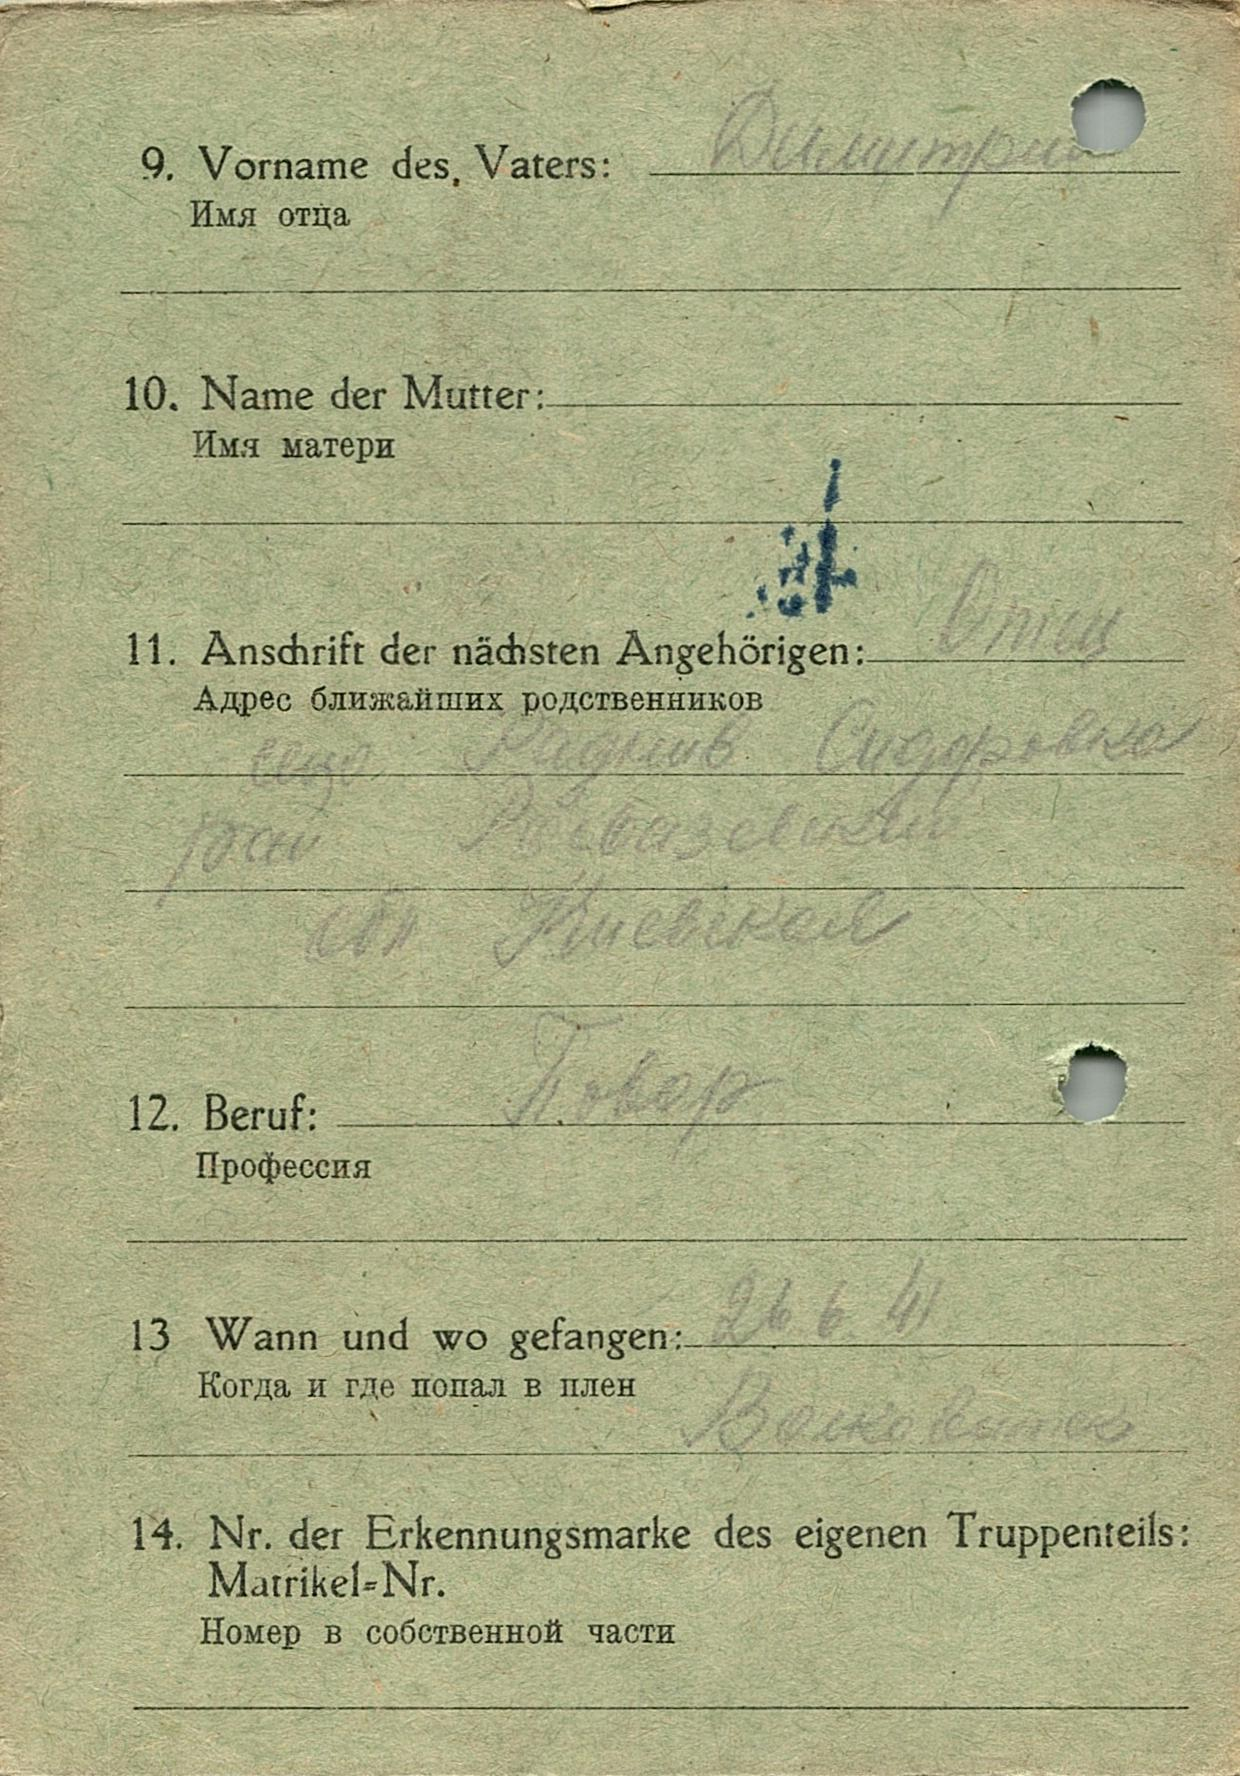 9. Vorname des Vaters: Димитрий
Имя отца
10. Name der Mutter:
Имя матери
11. Anschrift der nächsten Angehörigen: Отец
Адрес ближайших родственников
село Сидоровка
рай
обл Киевская
12. Beruf: Повар
Профессия
13 Wann und wo gefangen: 26 6. 41
Когда и где попал в плен
14. Nr. der Erkennungsmarke des eigenen Truppenteils:
Matrikel=Nr.
Номер в собственной части